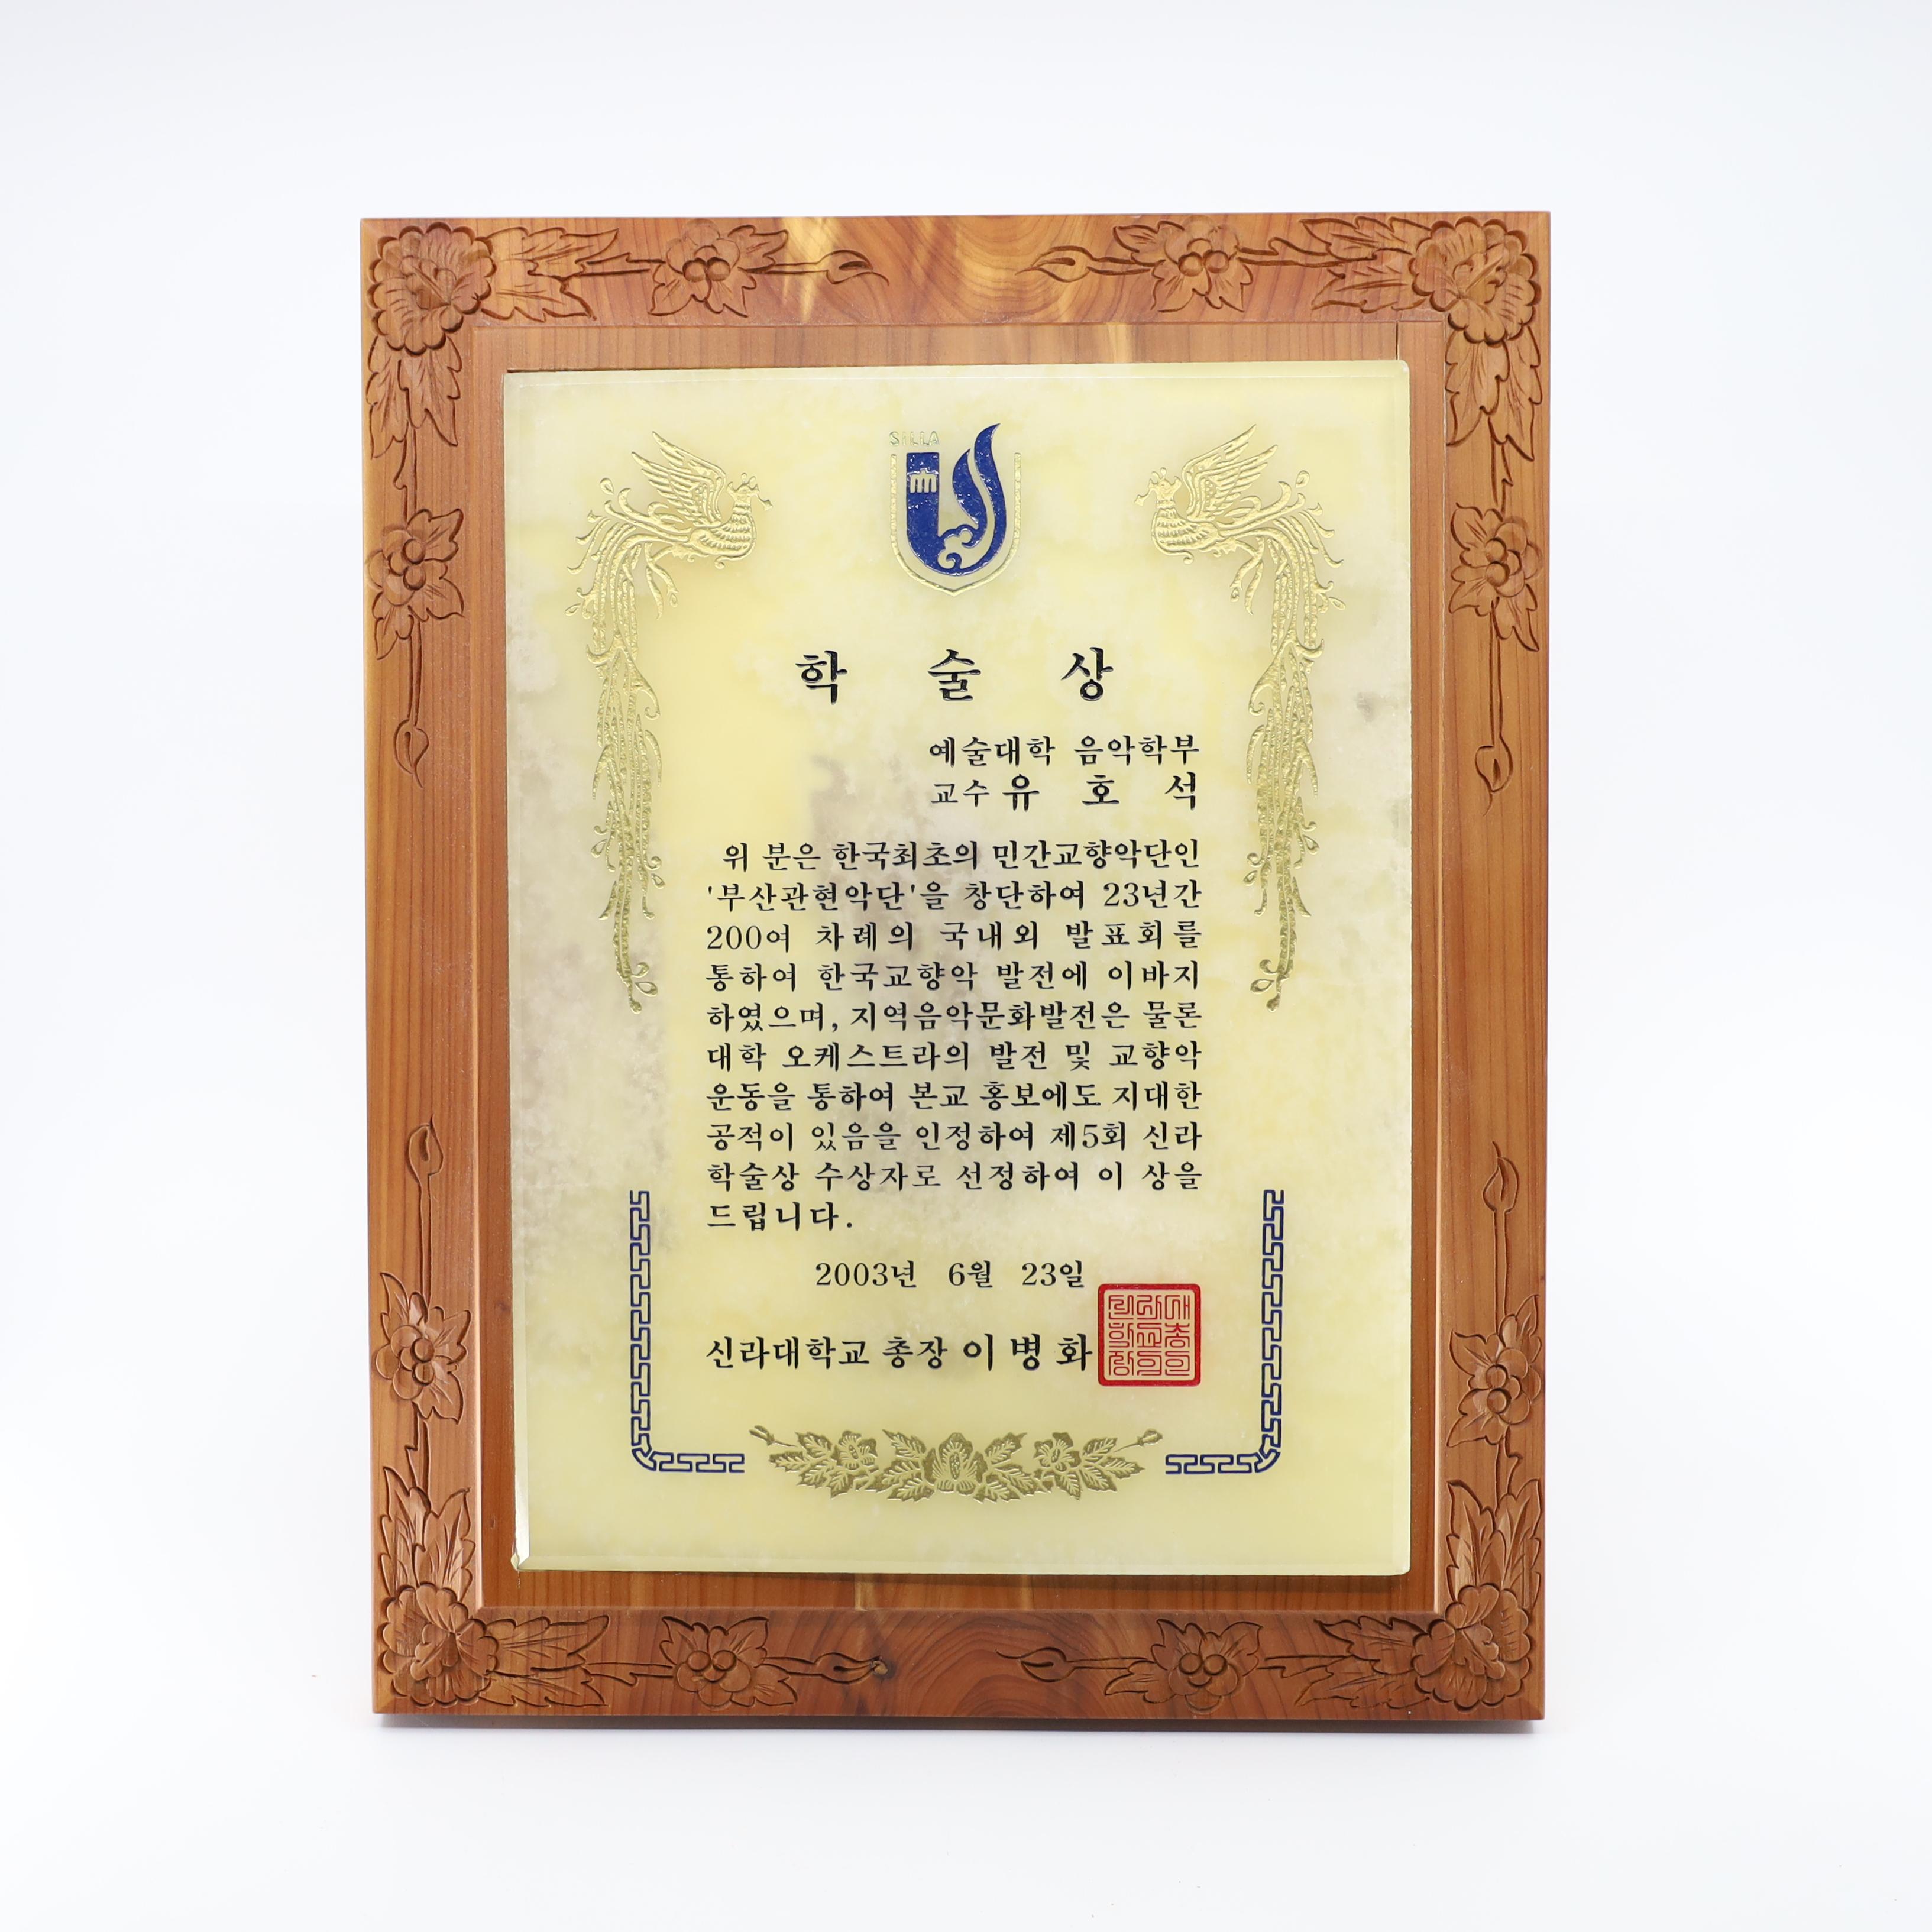 SILLA
학 술 상
예술대학 음악학부
교수 유 호 석
위 분은 한국최초의 민간교향악단인
'부산관현악단'을 창단하여 23년간
200여 차례의 국내외 발표회를
통하여 한국교향악 발전에 이바지
하였으며, 지역음악문화발전은 물론
대학 오케스트라의 발전 및 교향악
운동을 통하여 본교 홍보에도 지대한
공적이 있음을 인정하여 제5회 신라
학술상 수상자로 선정하여 이 상을
드립니다.
2003년 6월 23일
신라대학교 총장 이 병 화